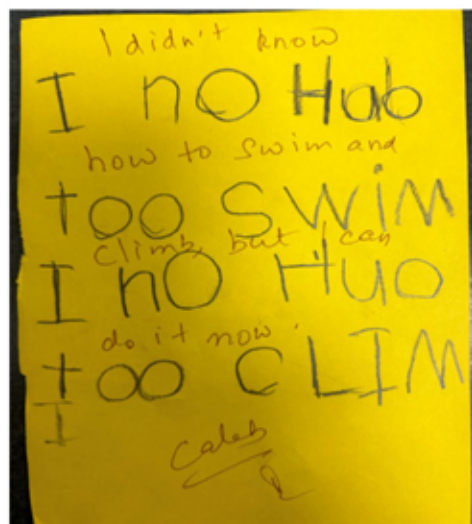 I didn't know
I no Hab
how to swim and
too SWiM
climb, but I can
I nO HUO
do it now.
too CLIM
I
Caleb